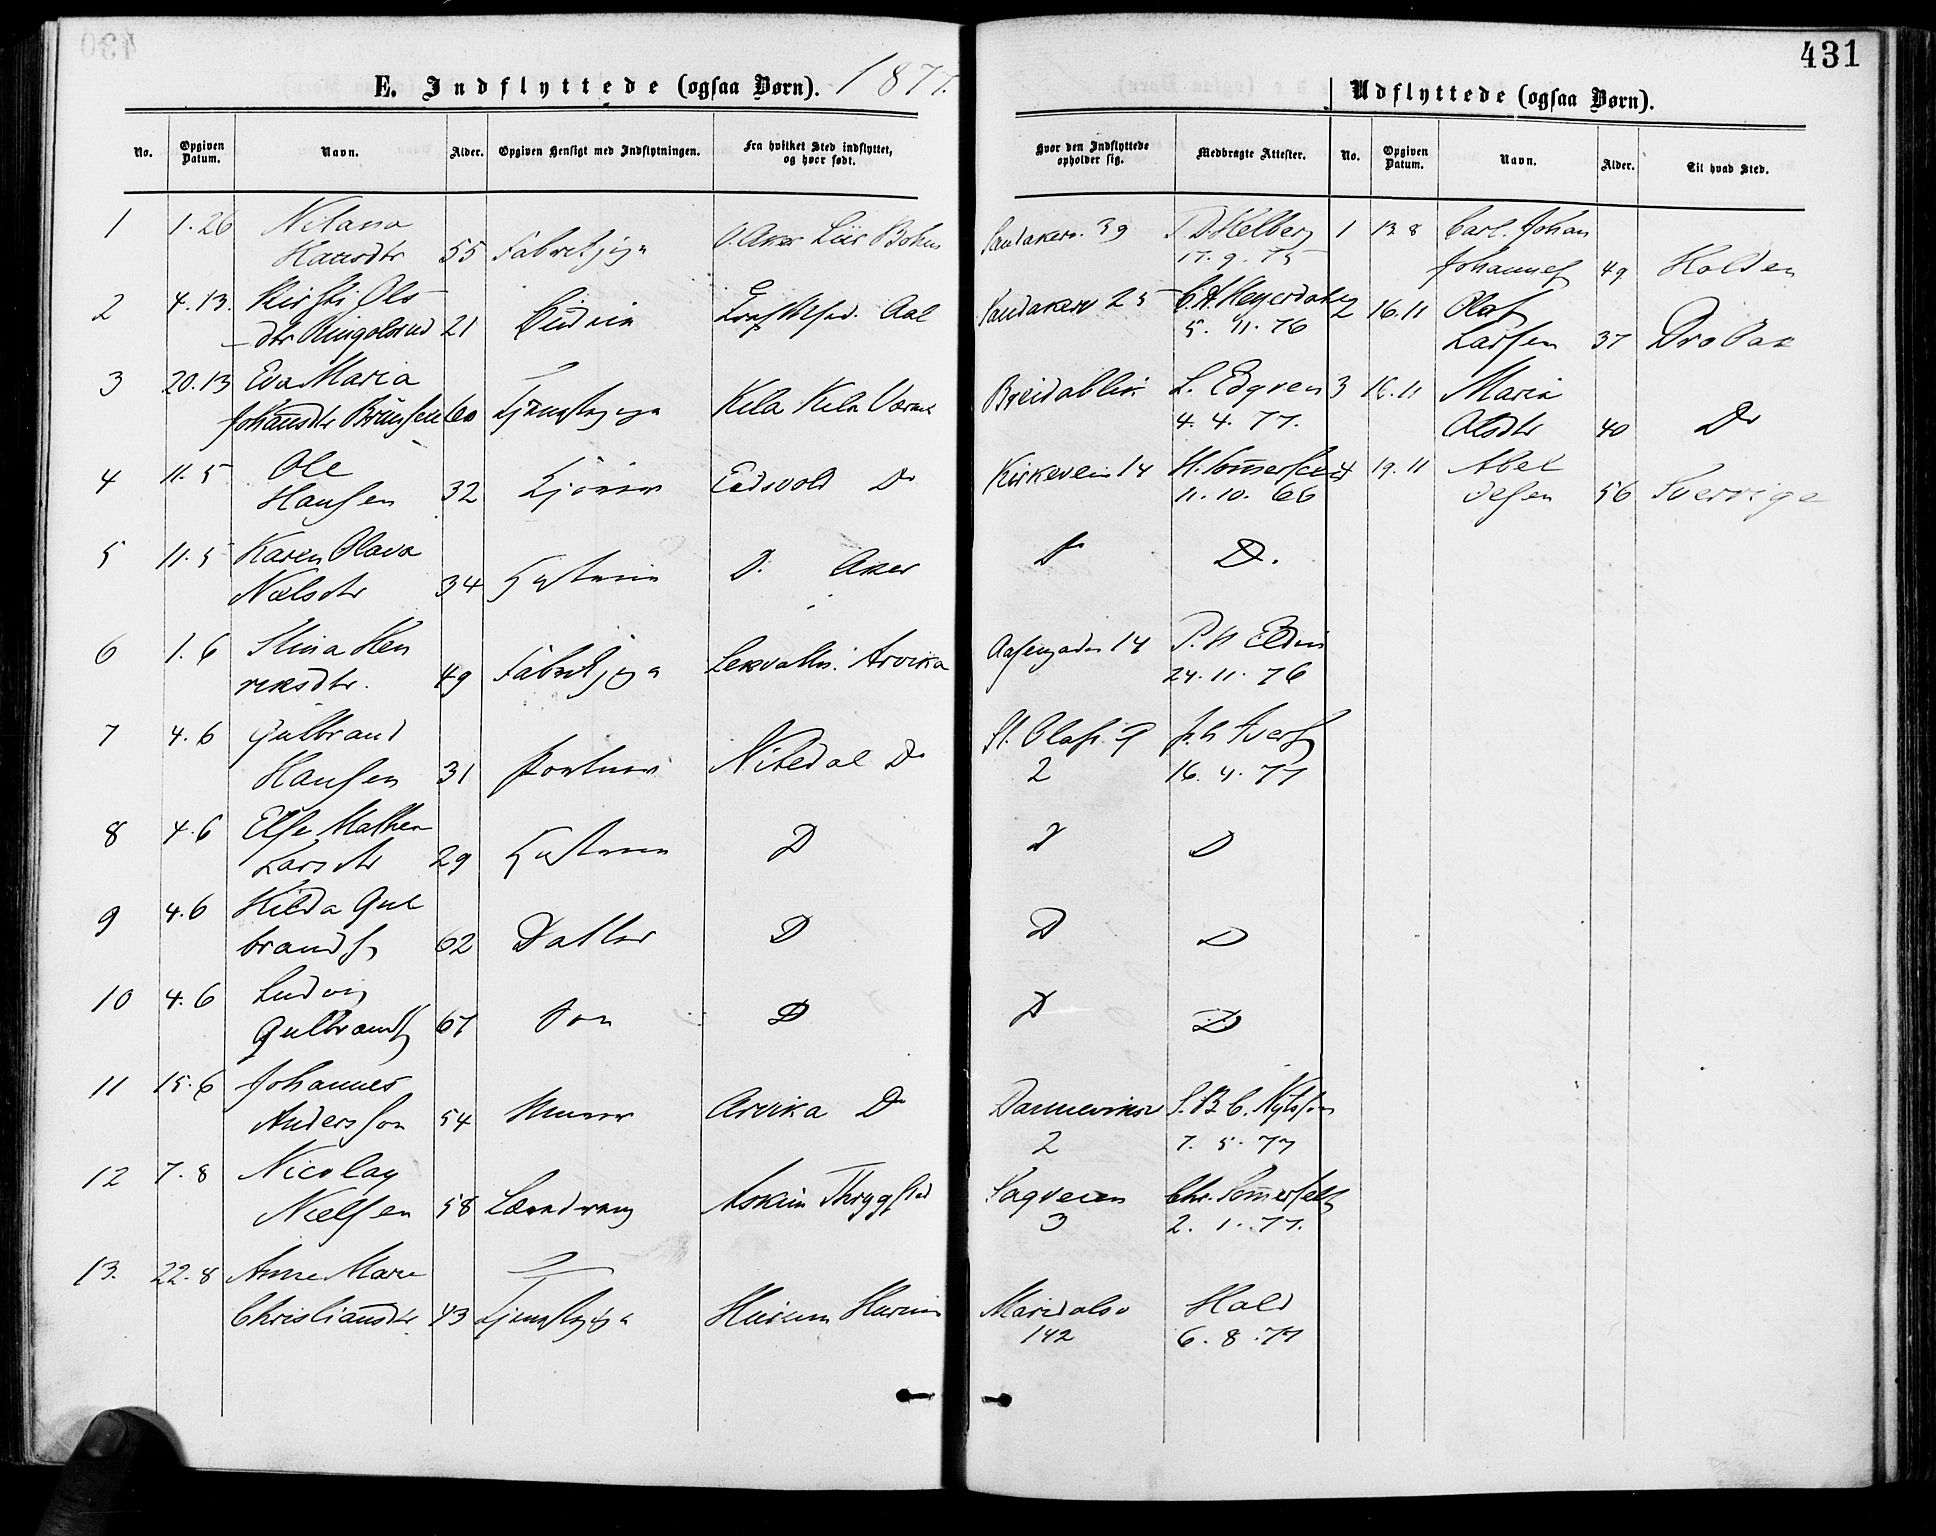 431
E. Indflyttede (ogsaa Børn). 1877.
No. Opgiven Datum. Navn. Alder. Opgiven Hensigt med Indflytningen. Fra hvilket Sted indflyttet, og hvor født.
1 1.26 Hansdtr 55 Fabrikpige
2 4.13. Kirsti Ols
dtr 21 Aal
3 20.13 Eva Maria
Johansdtr 60 Kila Kila
4 11.5 Ole
Hansen 32 Eidsvold Do
5 11.5 Karen Olava
Nielsdtr 34 Hustru D. Aker
6 1.6 Stina Hen
riksdtr. 49 Fabrikpige Arvika
7 4.6 Gulbrand
Hansen 31 Nitedal Do
8 4.6 Else Mathea
Larsdtr 29 Hustru D
9 4.6 Hilda Gul
brands 62 Datter D
10 4.6 Ludvig
Gulbrands 67 Søn D
11 15.6 Johannes
Andersson 54 Murer Arvika Do
12 7.8 Nicolay
Nielsen 58 Askim Thrygstad
13. 22.8 Anne Marie
Christiansdtr 43 Hurum Hurum
Udflyttede (ogsaa Børn).
Hvor den Indflyttede opholder sig. Medbragte Attester. No. Opgiven Datum. Navn. Alder. Til hvad Sted.
Sandakerv. 39 Kelberg 1 13 8 Carl Johan
17.9.75 Johannes 49 Holden
Sandakerv 25 C. H. Heyerdahl 2 16.11 Olaf
5. 11. 76 Larsen 37 Drøbak
Breidablik L. Edgren 3 16.11 Maria
4. 4. 77. Olsdtr 40 Do
Kirkeveien 14 H. Sommerfeldt 4 19.11 Abel
11. 10. 66 56 Sverrige
D D.
14 P. N.
24. 11. 76
St. Olafs. G
2 16. 4. 77
D D
D D
D D
Dannevirksv
2 7. 5. 77
Sagveien Chr. Sommerfelt
3 2. 1. 77.
Maridalsv Hald
142 6. 8. 77